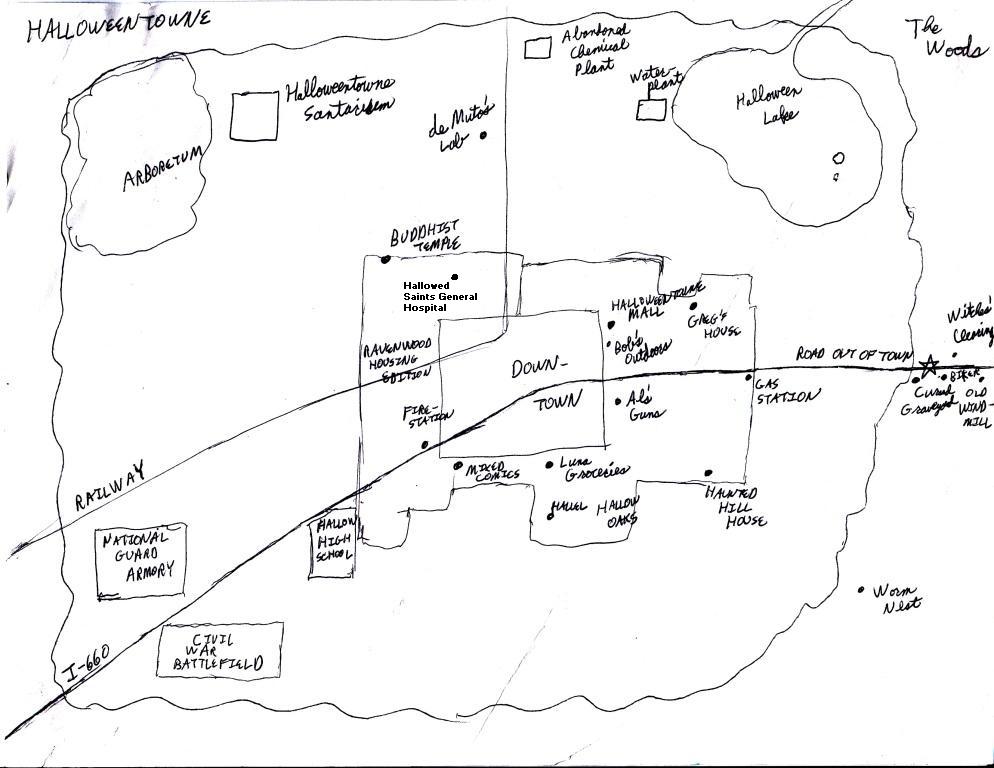 HALLOWEENTOWNE
The
Woods
Abandoned
Chemical
Plant
Water-
plant
Halloween
Lake
Halloweentowne
Santarisem
de Muto's
Lab
ARBORETUM
BUDDHIST
TEMPLE
Hallowed
Saints General
Hospital
HALLOWEENTOWNE
MALL
GREG'S
HOUSE
Bob's
Outdoors
RAVENWOOD
HOUSING
EDITION
DOWN-
TOWN
ROAD OUT OF TOWN
Witches
Clearing
GAS
STATION
Cursed
Graveyard
BIKER
OLD
WIND-
MILL
FIRE-
STATION
Al's
Guns
MIXED
COMICS
Luna
Groceries
RAILWAY
HALLOW
OAKS
HAUNTED
HILL
HOUSE
NATIONAL
GUARD
ARMORY
HALLOW
HIGH
SCHOOL
Worm
Nest
CIVIL
WAR
BATTLEFIELD
I-660